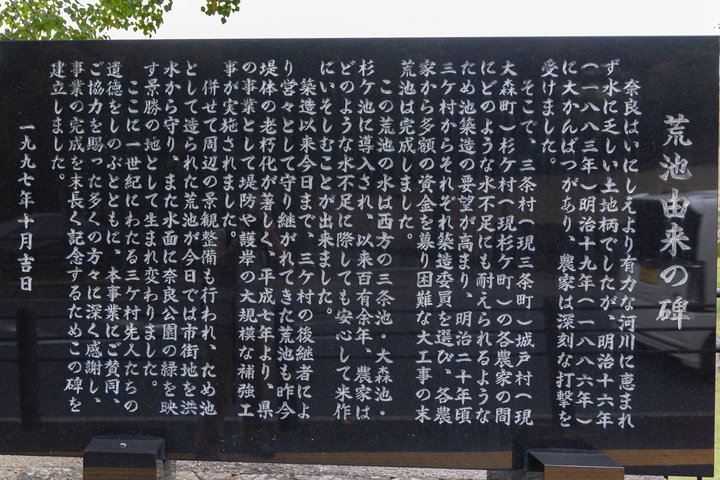 荒池由来の碑
奈良はいにしえより有力な河川に恵まれ
ず水に乏しい土地柄でしたが、明治十六年
(一八八三年)明治十九年(一八八六年)
に大かんばつがあり、農家は深刻な打撃を
受けました。
そこで、三条村(現三条町)城戸村(現
大森町)杉ケ村(現杉ケ町)の各農家の間
にどのような水不足にも耐えられるような
ため池築造の要望が高まり、明治二十年頃
三ケ村からそれぞれ築造委員を選び、各農
家から多額の資金を募り困難な大工事の末
荒池は完成しました。
この荒池の水は西方の三条池・大森池・
杉ケ池に導入され、以来百有余年、農家は
どのような水不足に際しても安心して米作
にいそしむことが出来ました。
築造以来今日まで、三ケ村の後継者によ
り営々として守り継がれてきた荒池も昨今
堤体の老朽化が著しく、平成七年より、県
の事業として堤防や護岸の大規模な補強工
事が実施されました。
併せて周辺の景観整備も行われ、ため池
として造られた荒池が今日では市街地を洪
水から守り、また水面に奈良公園の緑を映
す景勝の地として生まれ変わりました。
ここに一世紀にわたる三ケ村先人たちの
道徳をしのぶとともに、本事業にご賛同、
ご協力を賜った多くの方々に深く感謝し、
事業の完成を末長く記念するためこの碑を
建立しました。
一九九七年十月吉日